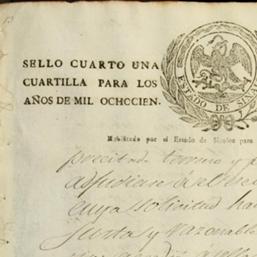 SELLO CUARTO UNA
CUARTILLA PARA LOS
AÑOS DE MIL OCHCCIEN.
ESTADO DE SINA
Habilitado por el Estado de Sinaloa para
precitado terreno y
cuya solicitud ha
justa y razonable